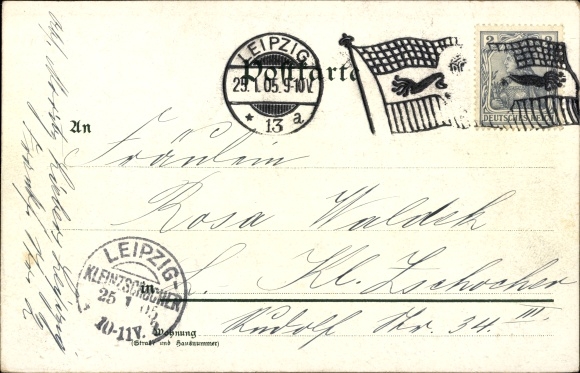 LEIPZIG
25.1.05.9-10V.
* 13 a
Postkarte
2 2
DEUTSCHES REICH
An
Fräulein
Rosa Waldek
in L. Kl. Zschocher
Rudolf Str. 34. III.
Wohnung
(Straße und Hausnummer)
LEIPZIG-
KLEINZSCHOCHER
25 1 05
10-11V.